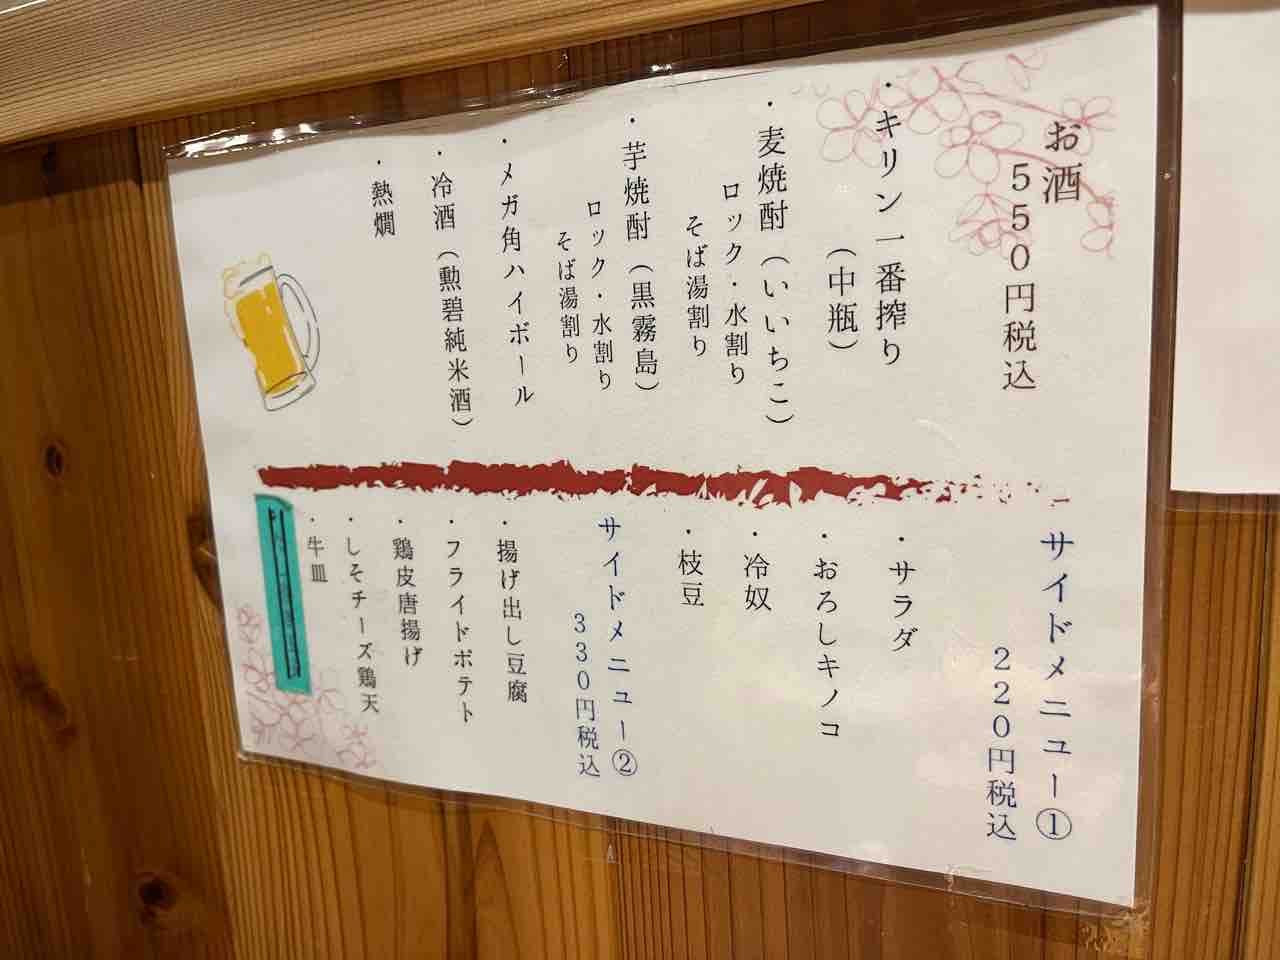 お酒
５５０円税込
・キリン一番搾り
（中瓶）
・麦焼酎（いいちこ）
ロック・水割り
そば湯割り
・芋焼酎（黒霧島）
ロック・水割り
そば湯割り
・メガ角ハイボール
・冷酒（勲碧純米酒）
・熱燗
サイドメニュー①
２２０円税込
・サラダ
・おろしキノコ
・冷奴
・枝豆
サイドメニュー②
３３０円税込
・揚げ出し豆腐
・フライドポテト
・鶏皮唐揚げ
・しそチーズ鶏天
・牛皿